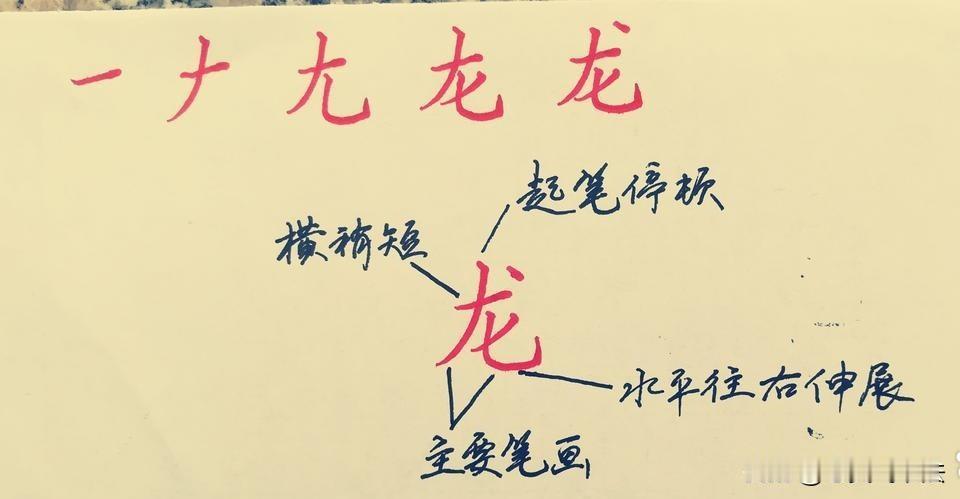 一 ナ 尢 龙 龙
起笔停顿
横稍短
龙
水平往右伸展
主要笔画